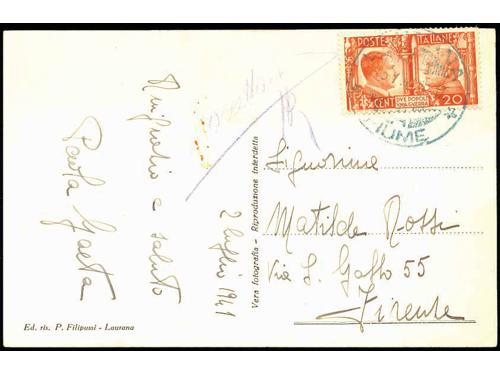 POSTE ITALIANE
CENT DUE POPOLI UNA GUERRA 20
FIUME
Ringrazio e saluto
Paola Gaeta
2 luglio 1941
Vera fotografia - Riproduzione interdetta
Signorina
Matilde Rossi
Via S. Gallo 55
Firenze
Ed. ris. P. Filipussi - Laurana